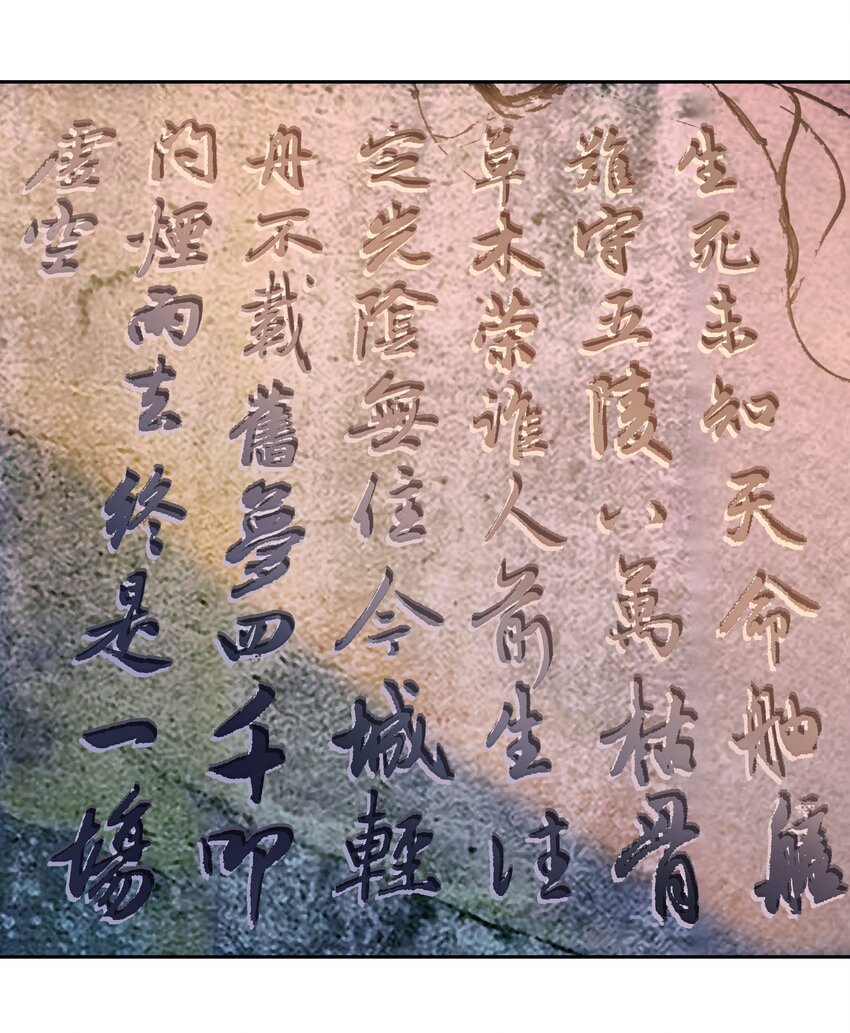 生死未知天命舳艫
難守五陵八萬枯骨
草木荣誰人前生註
定光陰無住今城輕
舟不載舊夢四千叩
问煙雨去終是一場
虛空